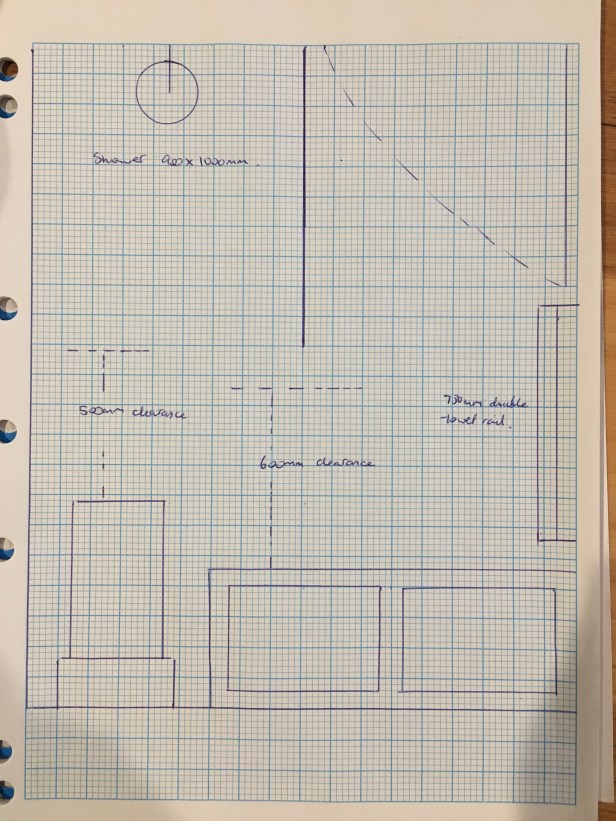 Shower 900x1000mm.
500mm clearance
600mm clearance
750mm double
towel rail.